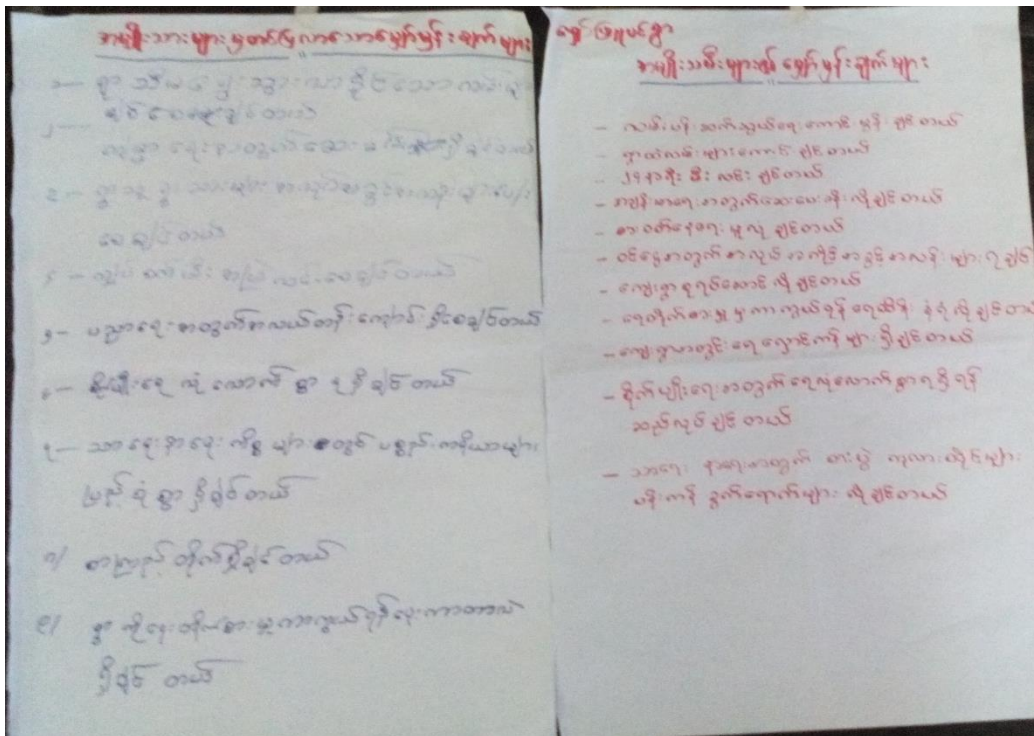 အမျိုးသားများမှတင်ပြလာသောမျှော်မှန်းချက်များ
၁ — ရွာ
ဖြစ်စေချင်တယ်
၂ —
ကျန်းမာရေးအတွက်ဆေး ရှိချင်တယ်
၃ — ရွာသူ ရွာသားများ အလုပ်အကိုင်အခွင့်အလမ်းများ
စေချင်တယ်
၄ — လျှပ်စစ်မီး အမြဲလင်းစေချင်တယ်
၅ — ပညာရေးအတွက်အလယ်တန်းကျောင်းရှိစေချင်တယ်
၆ — စိုက်ပျိုးရေ လုံလောက်စွာ ရရှိချင်တယ်
၇ — သာရေးနာရေးကိစ္စများအတွင် ပစ္စည်းကရိယာများ
ပြည့်စုံစွာရှိချင်တယ်
၈/ စာကြည့်တိုက်ရှိချင်တယ်
၉/ ရွာကိုရေတိုက်စားမှုကာကွယ်ရန်ရေကာတာလဲ
ရှိချင်တယ်
မျှော်ဖြူပင်ရွာ
အမျိုးသမီးများ၏မျှော်မှန်းချက်များ
– လမ်းပန်းဆက်သွယ်ရေးကောင်းမွန်ချင်တယ်
– ရွာထဲလမ်းများကောင်းချင်တယ်
– ၂၄နာရီမီးလင်းချင်တယ်
– ကျန်းမာရေးအတွက်ဆေးပေးခန်းလိုချင်တယ်
– စားဝတ်နေရေးမှုလုံချင်တယ်
– ဝင်ငွေအတွက်အလုပ်အကိုင်အခွင့်အလမ်းများရချင်
– ကျေးရွာစုရပ်ဆောင်လိုချင်တယ်
– ရေတိုက်စားမှုမှကာကွယ်ရန်ရေထိန်းနံရံလိုချင်တယ်
– ကျေးရွာအတွင်းရေလှောင်ကန်များရှိချင်တယ်
– စိုက်ပျိုးရေးအတွက်ရေလုံလောက်စွာရရှိရန်
ဆည်လုပ်ချင်တယ်
– သာရေးနာရေးအတွက် စားပွဲကုလားထိုင်များ
ပန်းကန်ခွက်ယောက်များလိုချင်တယ်